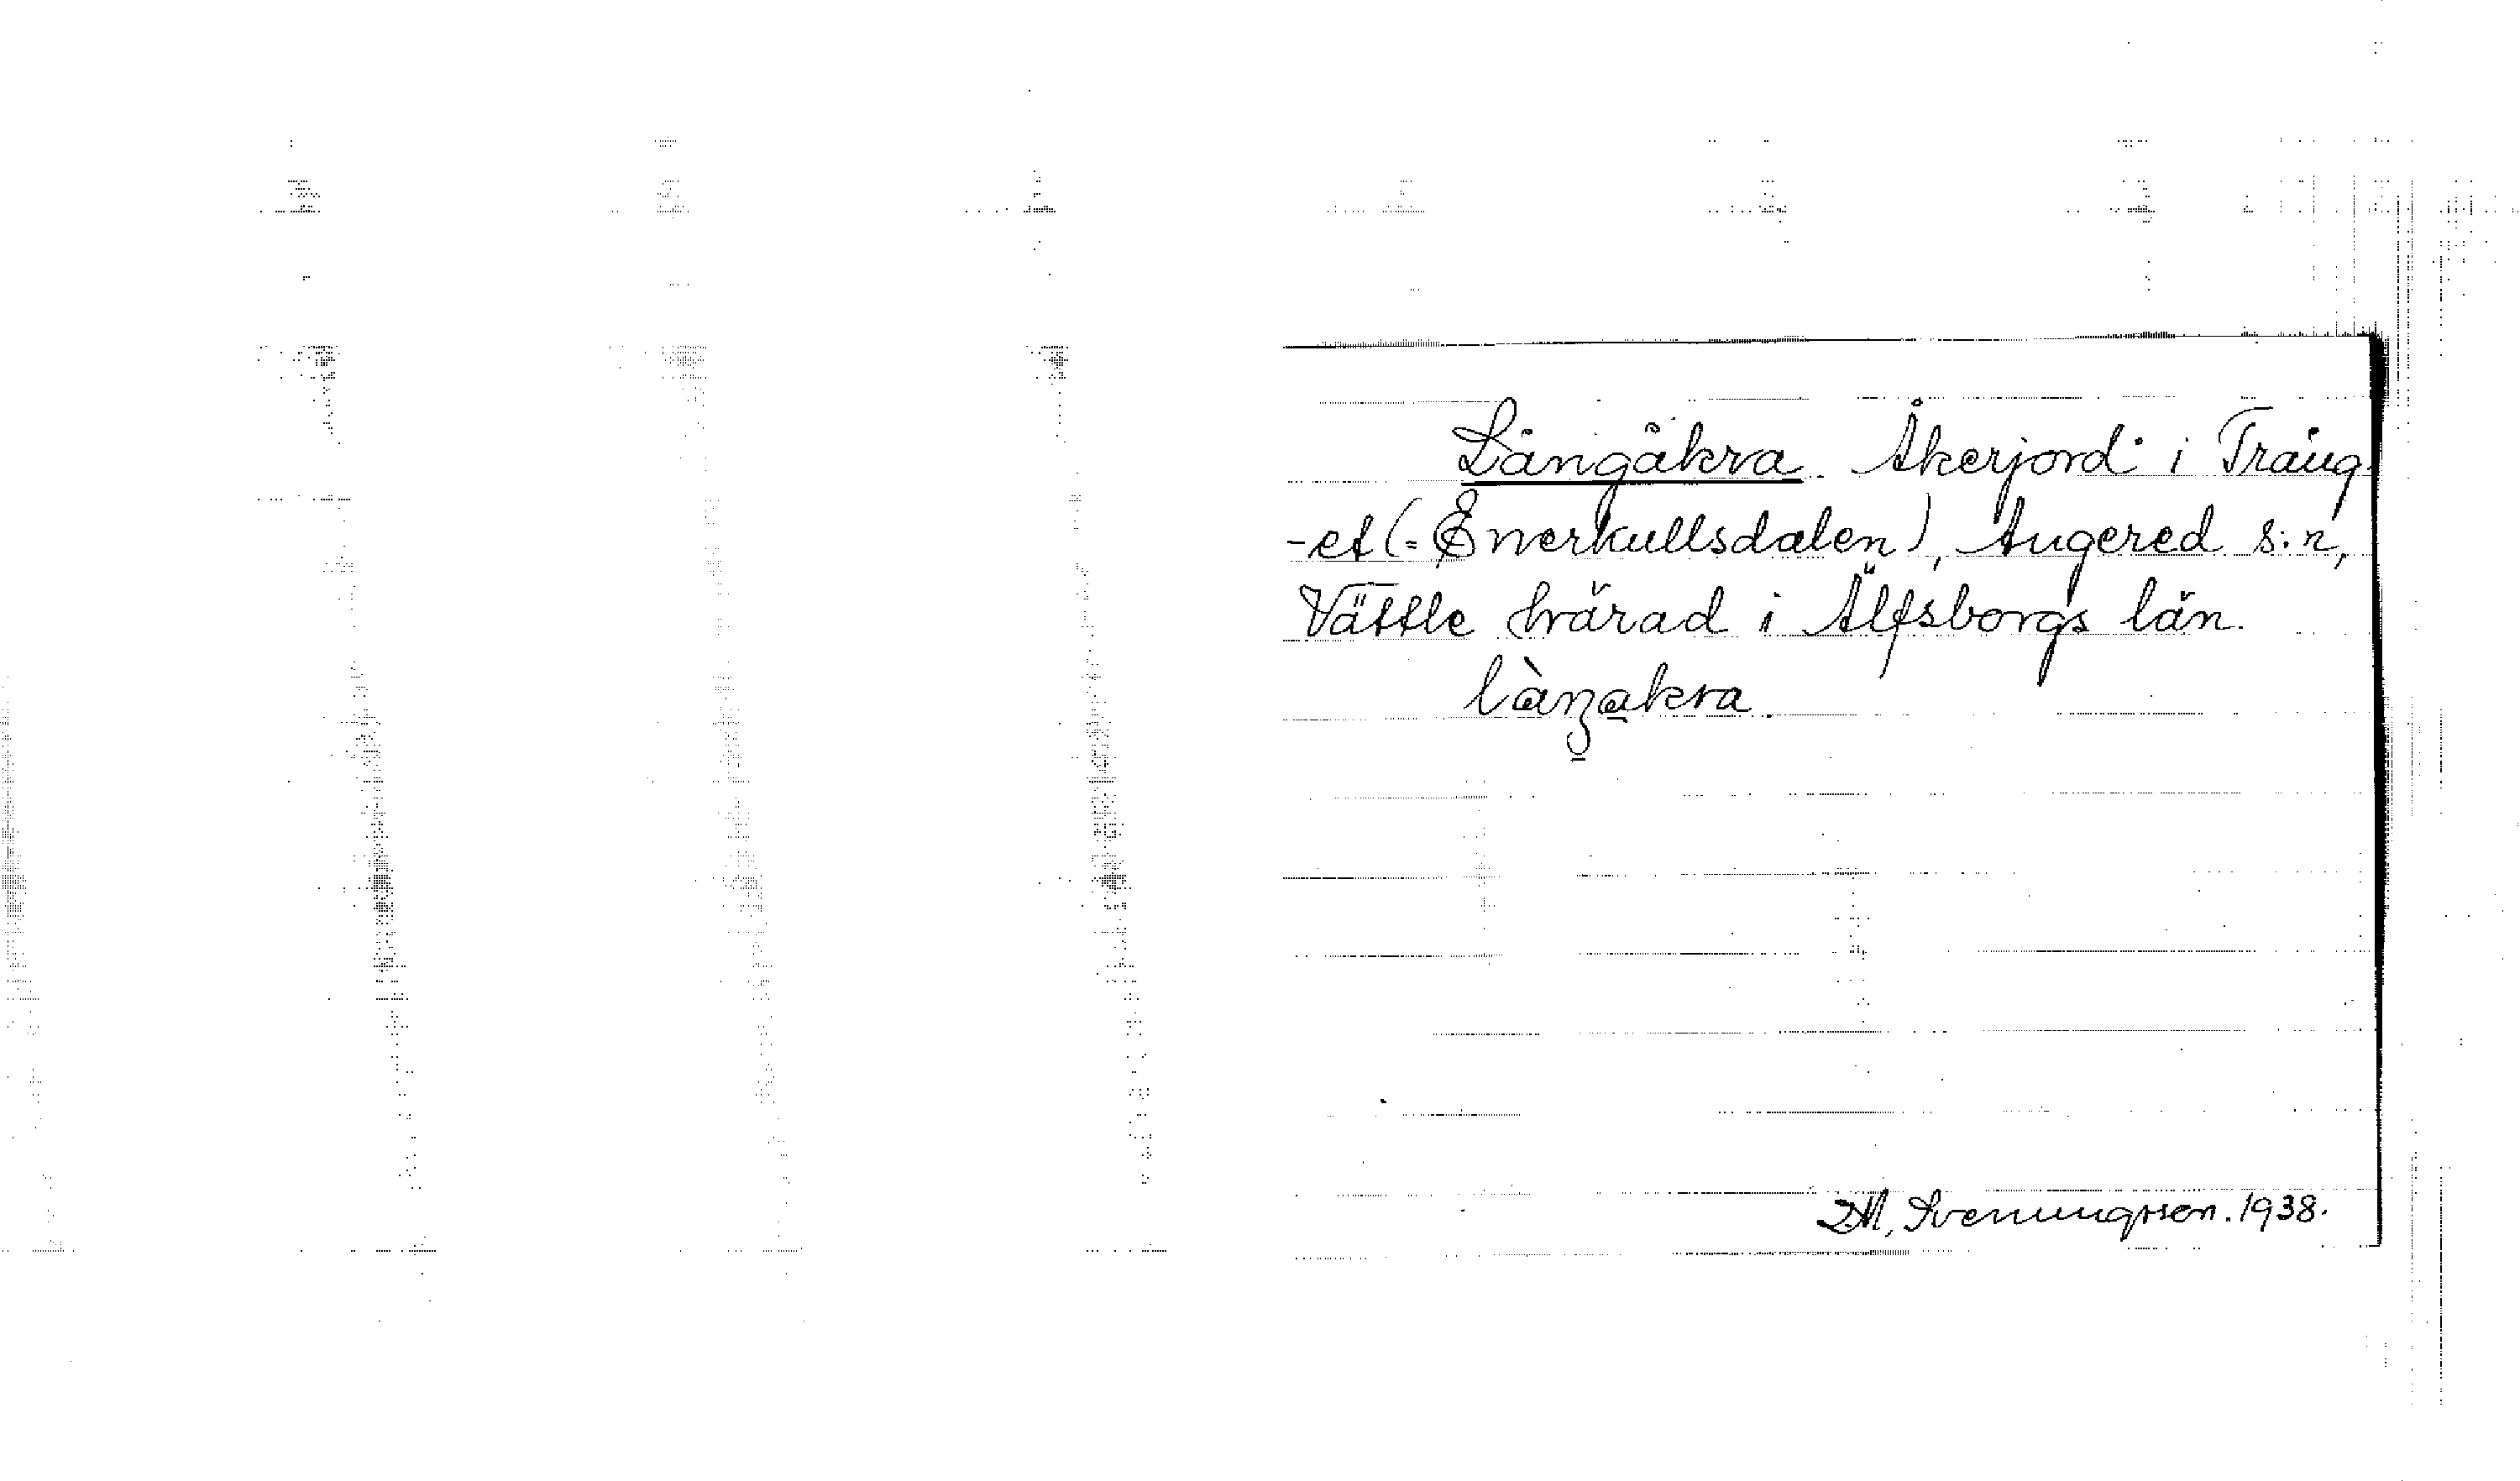 Långåkra. Åkerjord i Trång-
-et (= Enerkullsdalen), Angered s:n,
Vättle härad i Älfsborgs län.
làŋakra
M. Svenungsson. 1938.